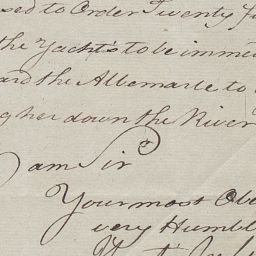 sed to Order Twenty
the Yacht's to be imme
ard the Albemarle to
g her down the River
I am Sir
Your most Obe
very Humbl